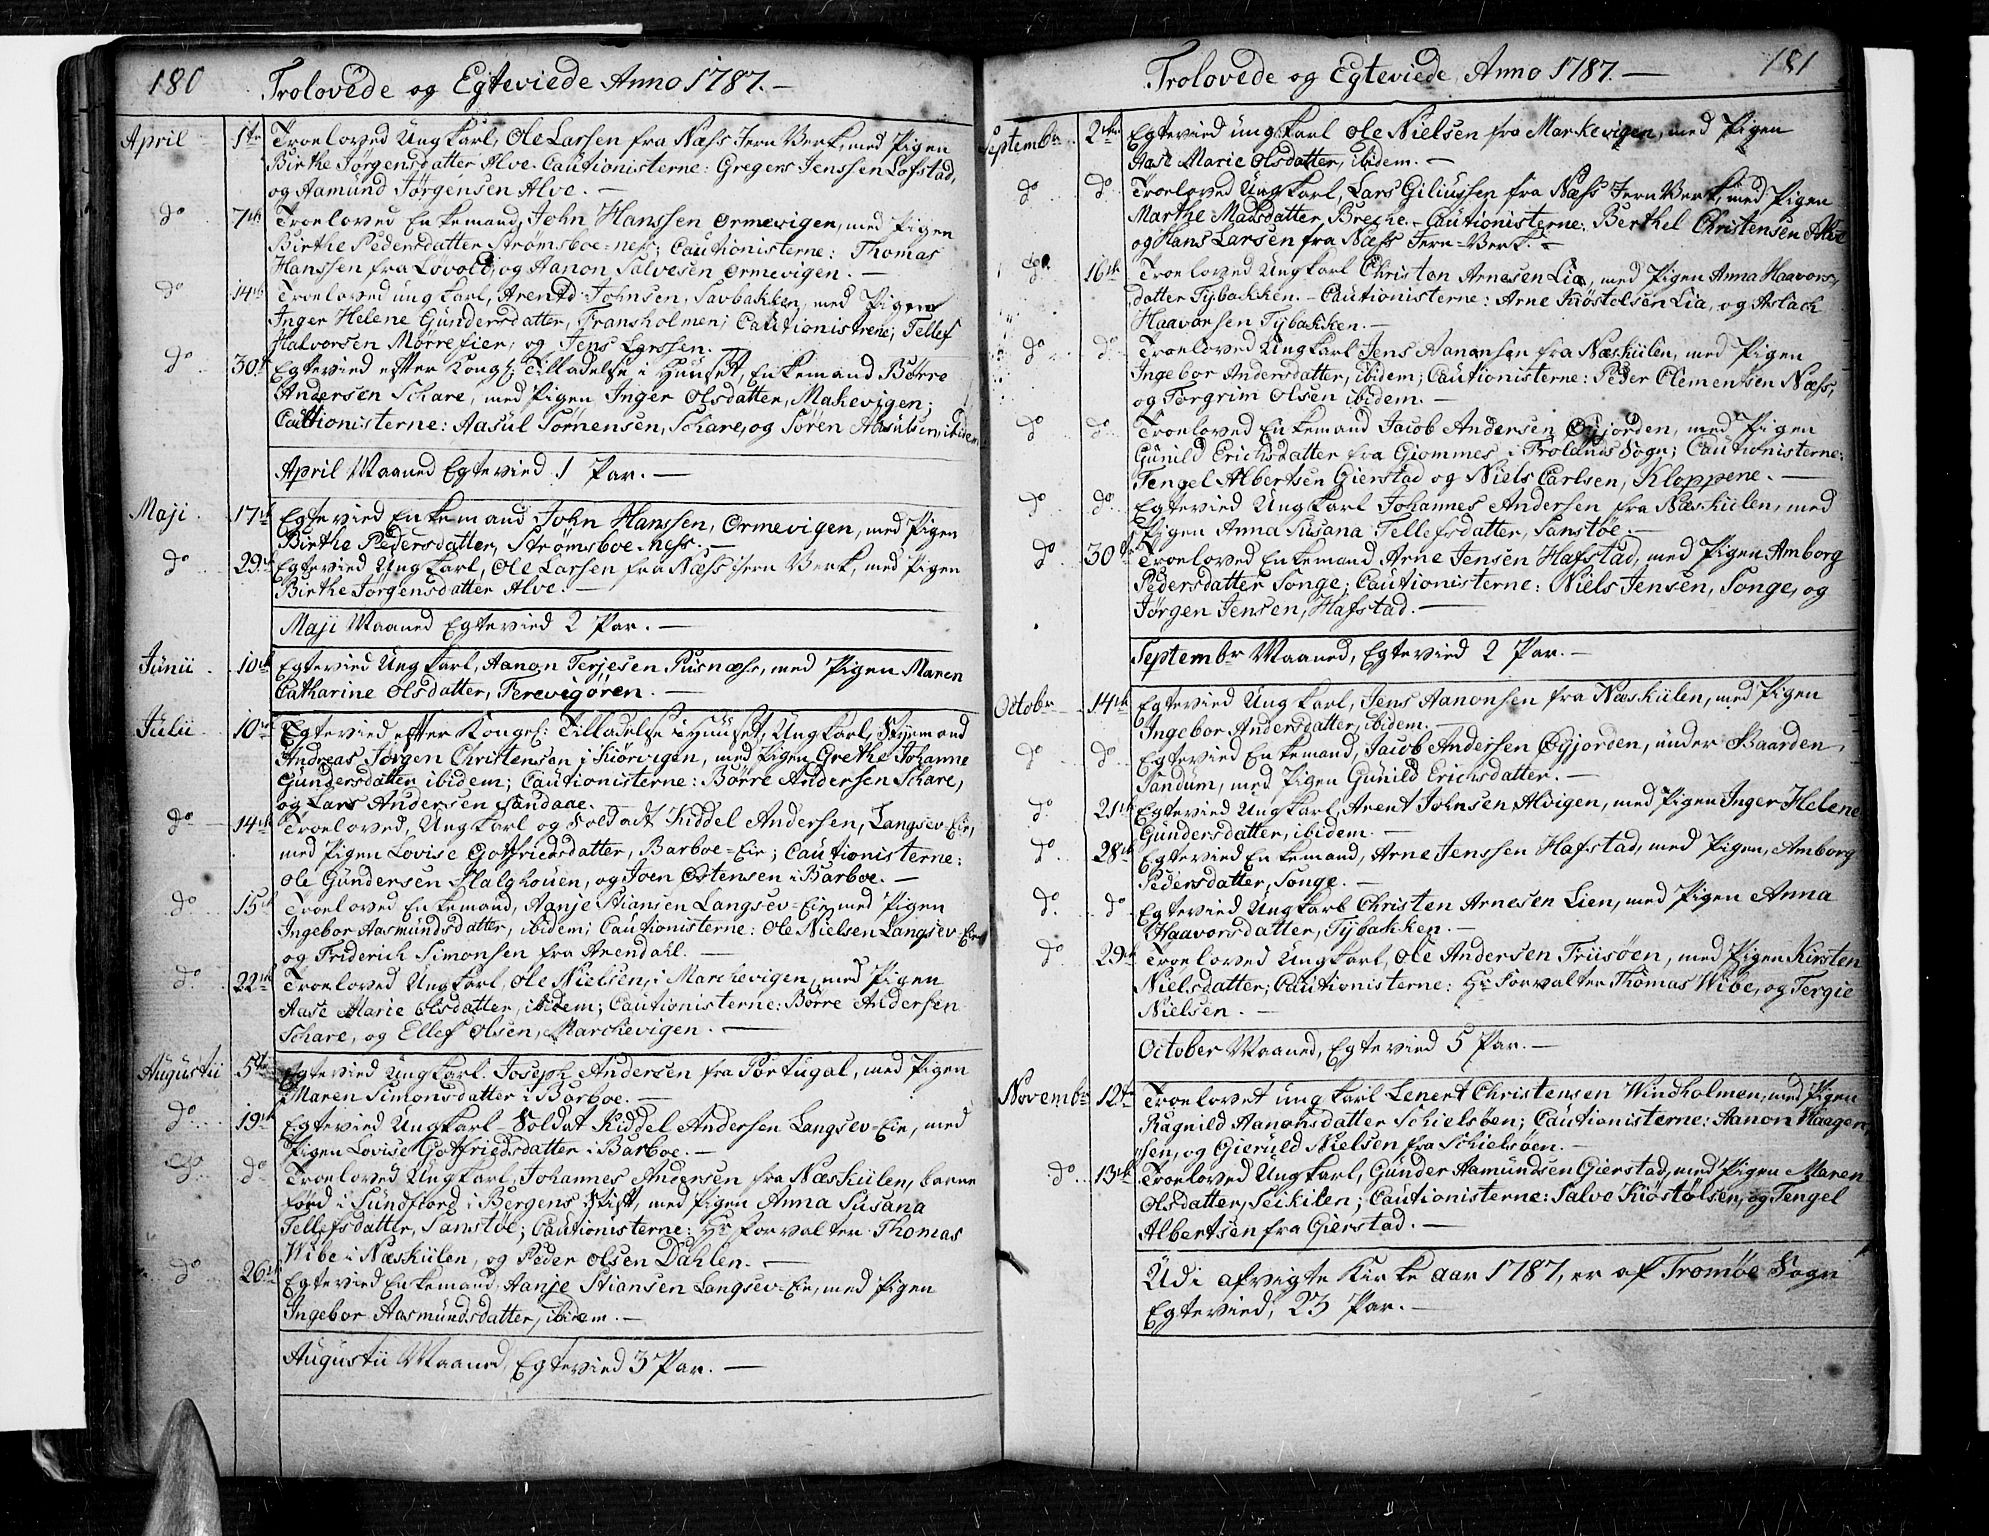 180
Trolovede og Egteviede Anno 1787. —
April 1te Troeloved Ungkarl, Ole Larsen fra Næss Jern Verk, med Pigen
Birthe Jørgensdatter Alve. Cautionisterne: Gregers Jenssen Lofstad,
og Aamund Jörgensen Alve. —
do 7de Troeloved Enkemand, John Hanssen Ormevigen, med Pigen
Birthe Pedersdatter Strømsboe=ness; Cautionisterne: Thomas
Hanssen fra Løvold, og Aanon Salvesen Ormevigen. —
do 14de Troeloved ungkarl, Arentd Johnsen, Savbakken, med Pigen
Inger Helene Gündersdatter, Fransholmen; Cautionistrene; Tellef
Halvorsen Mørrefier, og Jens Larssen. —
do 30te Egtevied efter Kongl: Tilladelse i Huuset, Enkemand Børre
Andersen Schare, med Pigen Inger Olsdatter, Makevigen;
Cauttionisterne: Aasül Tørnensen, Schare, og Søren Aasülsen, ibidem
April Maaned Egtevied 1 Par. —
Maji 17de Egtevied Enkemand John Hanssen, Ormevigen, med Pigen
Birthe Pedersdatter, Strømsboe=ness. —
do 29de Egtevied Ungkarl, Ole Larsen fra Næss Jern Verk, med Pigen
Birthe Jørgensdatter Alve. —
Maji Maaned Egtevied 2 Par. —
Junii 10de Egtevied Ungkarl, Aanon Terjesen Pusnæss, med Pigen Maren
Catharine Olsdatter, Terevigøren. —
Julii 10de Egtevied efter Kongel: Tilladelse i Huuset, Ungkarl, Styrmand
Andreas Jørgen Christensen i Kiörvigen, med Pigen Grethe Johanne
Gundersdatter ibidem; Cautionisterne: Børre Andersen Schare,
og Lars Andersen Sandaae. —
do 14de Troeloved, Ungkarl og Soldat Kiddel Andersen, Langsev=Eie,
med Pigen Lovise Gotfriedsdatter, Barboe=Eie; Cautionisterne:
Ole Gündersen Halghouen, og Joen Ostensen i Barboe. —
do 15de Troeloved Enkemand, Aanje Stiansen Langsev=Eie, med Pigen
Ingebor Aasmundsdatter, ibidem; Cautionisterne: Ole Nielsen Langsev=Eie
og Friderich Simonsen fra Arendahl. —
do 22de Troeloved Ungkarl, Ole Nielsen, i Marchevigen, med Pigen
Aase Marie Olsdatter, ibidem; Cautionisterne: Børre Andersen
Schare, og Ellef Olsen, Marchevigen. —
Augustii 5te Egtevied Ungkarl. Joseph Andersen fra Portugal, med Pigen
Maren Simonsdatter i Barboe. —
do 19de Egtevied Ungkarl – Soldat Kiddel Andersen Langsev=Eie, med
Pigen Lovise Gotfriedsdatter i Barboe. —
do do Troeloved Ungkarl, Johannes Andersen fra Næskiilen, baarne
förd i Sundfiord i Bergens Stift, med Pigen Anna Susana
Tellefsdatter, Sanstøl; Cautionisterne: Hr forvalter Thomas
Wibe i Næskiilen, og Peder Olsen Dahlen. —
do 26de Egtevied Enkemand, Aanje Stiansen Langsev=Eie, med Pigen
Ingebor Aasmündsdatter, ibidem. —
Augustii Maaned, Egtevied 3 Par. —
181
Trolovede og Egteviede, Anno 1787. —
Septembr 2den Egtevied ungkarl Ole Nielsen fra Markevigen, med Pigen
Aase Marie Olsdatter, ibidem. —
do do Troeloved Ungkarl, Lars Giliussen fra Næss Jern Verk, med Pigen
Marthe Madsdatter, Breche. – Cautionisterne, Berthel Christensen Alve
og Hans Larsen fra Næss Jern=Verk. —
do 16de Troeloved Ungkarl Christen Arnesen Lia, med Pigen Anna Haavors,
datter Tybakken. – Cautionisterne: Arne Kiöstelsen Lia, og Aslach
Haavorsen Tybakken. —
do do Troeloved Ungkarl Jens Aanonsen fra Næskiilen, med Pigen
Ingebor Andersdatter, ibidem; Cautionisterne: Peder Clementsen Næss,
og Torgrim Olsen ibidem. —
do do Troeloved Enkemand Jacob Andersen Öyjorden, med Pigen
Gunild Erichsdatter fra Giommes i Froland Sogn; Cautionisterne:
Tengel Albertsen Gierstad og Niels Carlsen, Kloppene. —
do do Egtevied Ungkarl Johannes Andersen fra Næskiilen, med
Pigen Anna Susana Tellefsdatter, Sanstøe. —
do 30te Troeloved Enkemand Arne Jensen Hafstad, med Pigen Amborg
Pedersdatter Songe; Cautionisterne: Niels Jensen, Songe, og
Jørgen Jensen, Hafstad. —
Septembr Maaned, Egtevied 2 Par. —
Octobr 14de Egtevied Ungkarl, Jens Aanonsen fra Næskiilen, med Pigen
Ingebor Andersdatter, ibidem. —
do do Egtevied Enkemand, Jacob Andersen Öyjorden, under Gaarden
Sandum, med Pigen Gunild Erichsdatter. —
do 21de Egtevied Ungkarl, Arent Johnsen Alvigen, med Pigen Inger Helene
Gündersdatter, ibidem. —
do 28de Egtevied Enkemand, Arne Jenssen Hafstad, med Pigen, Amborg
Pedersdatter, Songe. —
do do Egtevied Ungkarl Christen Arnesen Lien, med Pigen Anna
Haavorsdatter, Tybakken. —
do 29de Troeloved Ungkarl, Ole Andersen Friisøen, med Pigen Kirsten
Nielsdatter; Cautionisterne: Hr Forvalter Thomas Wibe, og Tergie
Nielsen. —
October Maaned, Egtevied 5 Par. —
Novembr 12te Troelovet ungkarl Lenert Christensen Windholmen, med Pigen
Ragnild Aanonsdatter Schielsøen; Cautionisterne: Aanon Haagen,
sen, og Gieruld Nielsen fra Schielsøen. —
do 13de Troeloved Ungkarl, Günder Aamundsen Gierstad, med Pigen Maren
Olsdatter, Seikilen; Cautionisterne: Salve Kiöstølsen, og Tengel
Albertsen fra Gierstad. —
Udi afvigte Kirke aar 1787, er af Tromøe Sogn
Egtevied, 23 Par. —